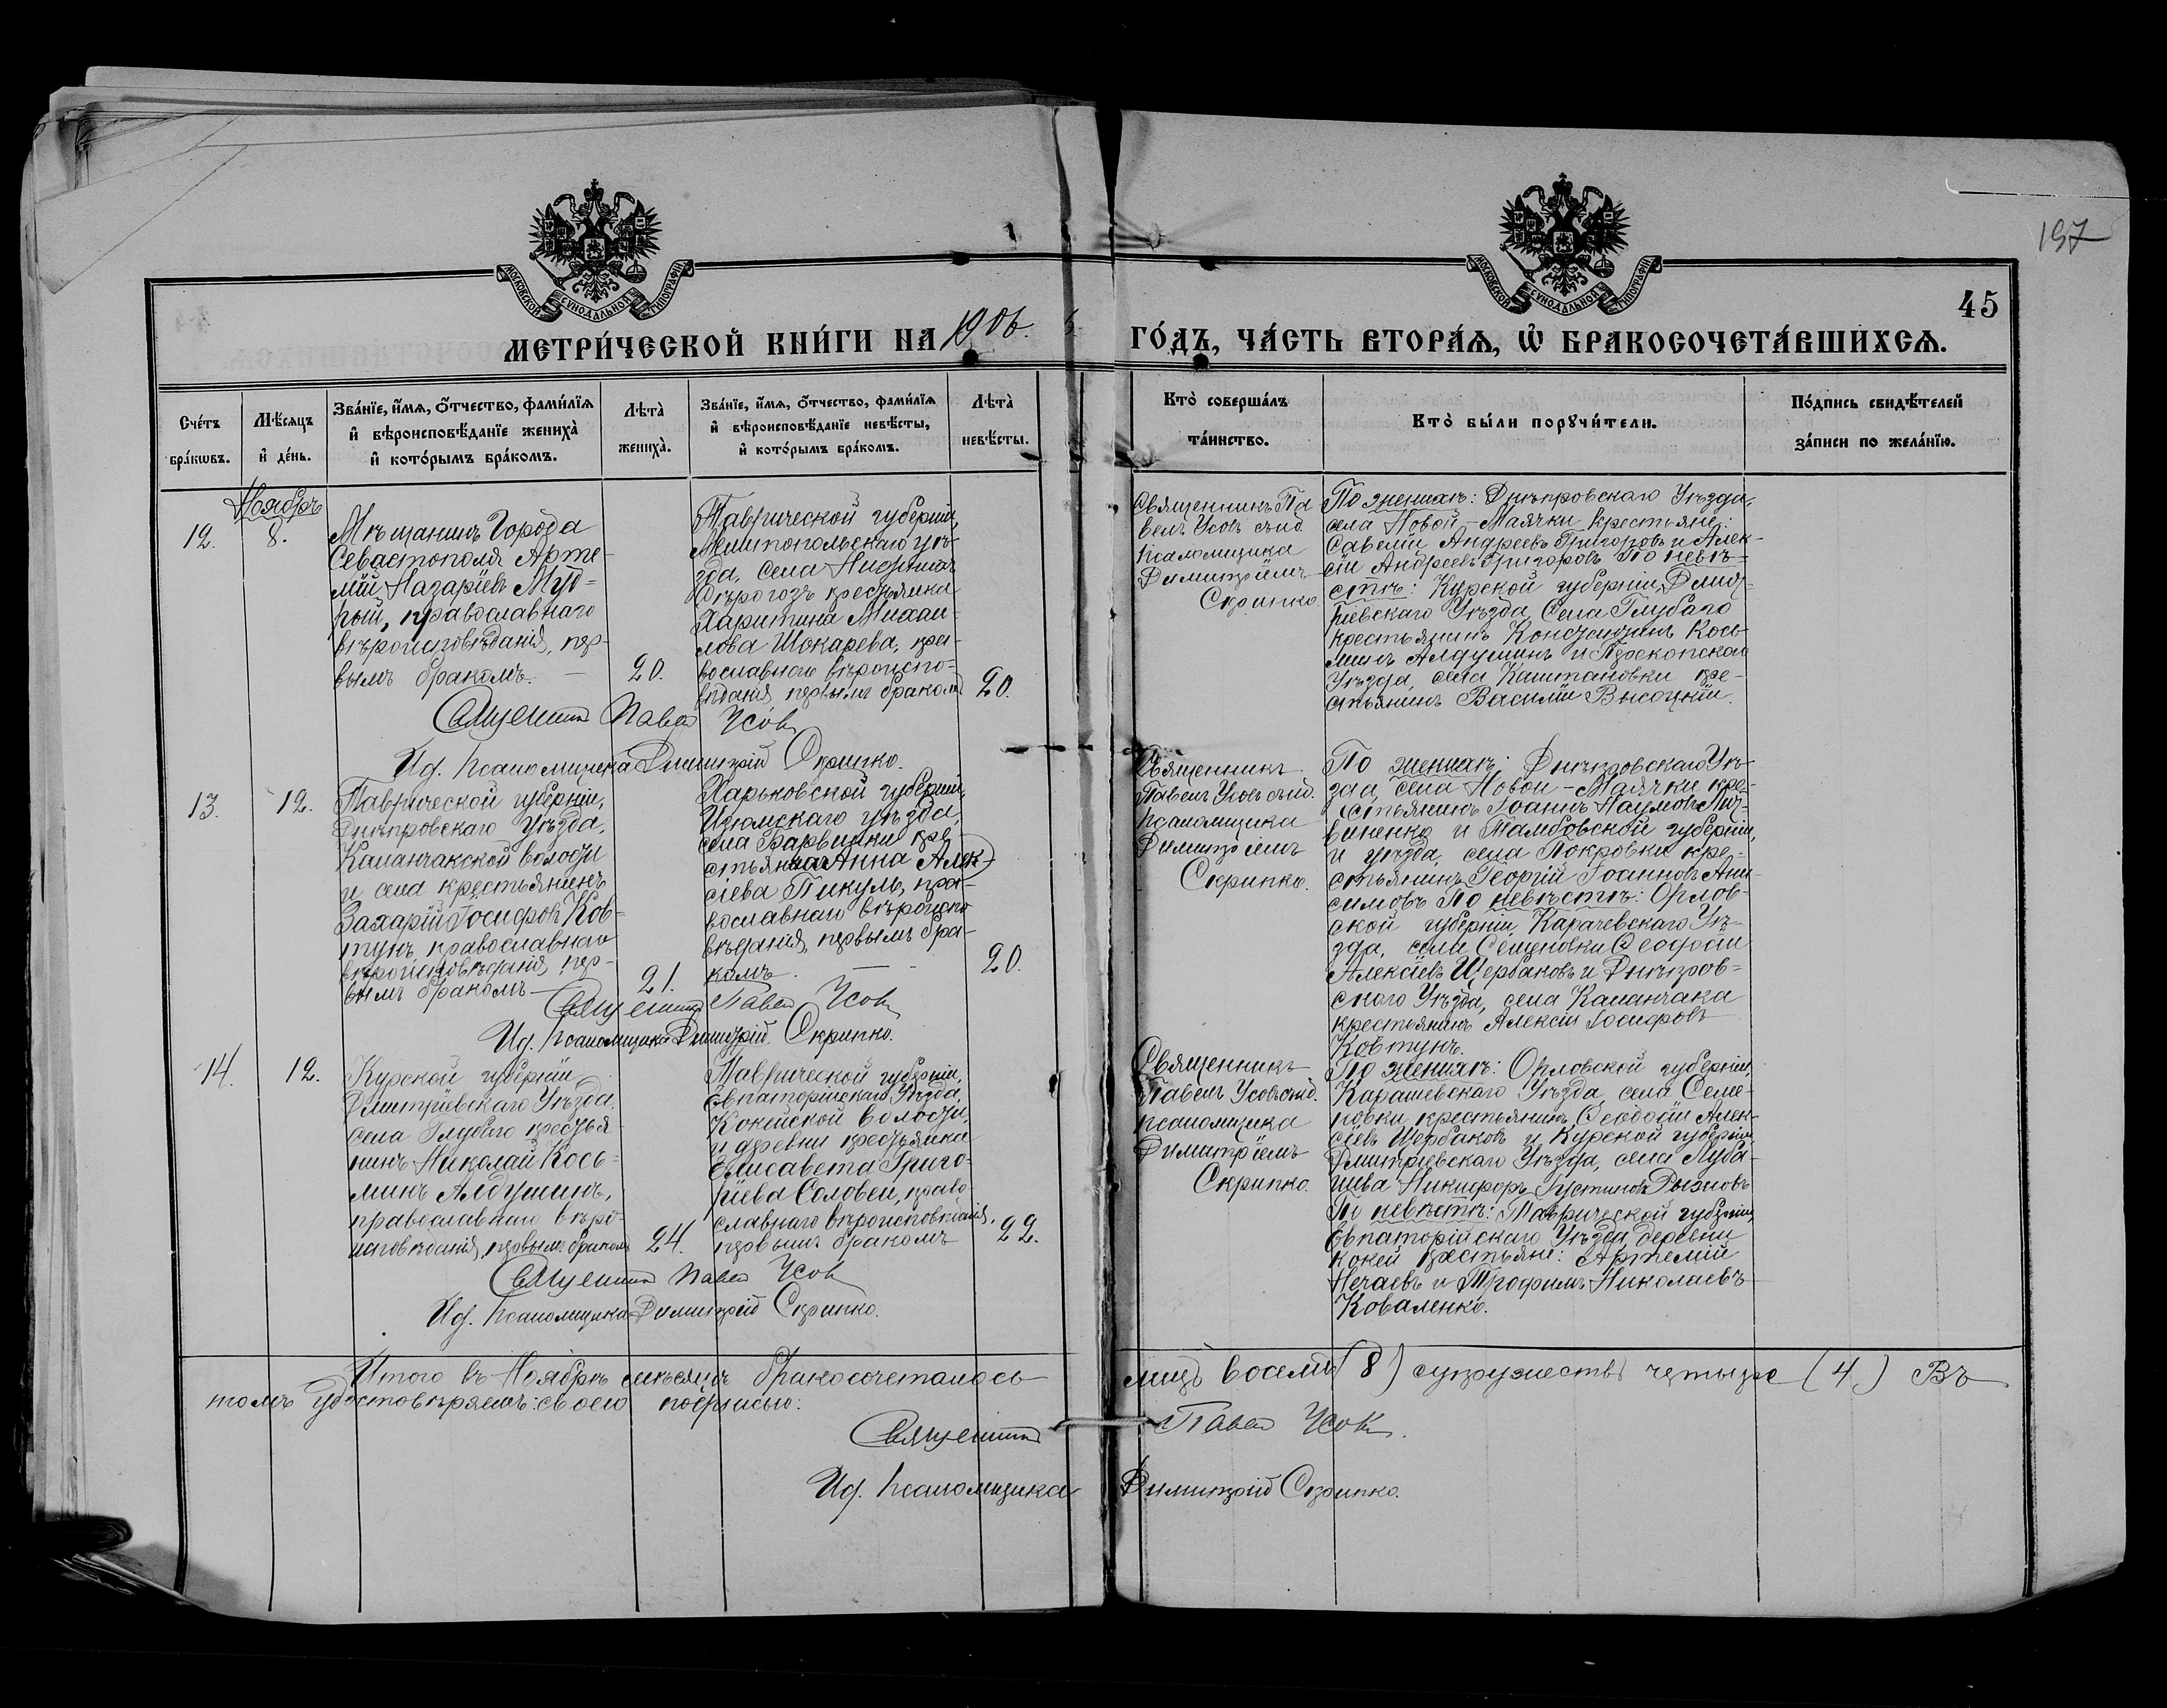 197
45
МОСКОВСКОЙ СУНОДАЛЬНОЙ ТИПОГРАФІИ
МОСКОВСКОЙ СУНОДАЛЬНОЙ ТИПОГРАФІИ
МЕТРИ́ЧЕСКОЙ КНИ́ГИ НА 1906. ГО́ДЪ, ЧА́СТЬ ВТОРА́Ѧ, Ѽ БРАКОСОЧЕТА́ВШИХСѦ.
Сче́тъ
бра́кѡвъ.
Мѣ́сѧцъ
и҆ де́нь.
Зва́нїе, и҆́мѧ, ѻ҆́тчество, фами́лїѧ
и҆ вѣроисповѣ́данїе жениха̀
и҆ кото́рымъ бра́комъ.
Лѣта̀
жениха̀.
Зва́нїе, и҆́мѧ, ѻ҆́тчество, фами́лїѧ
и҆ вѣроисповѣ́данїе невѣ́сты,
и҆ кото́рымъ бра́комъ.
Лѣта̀
невѣ́сты.
Кто̀ соверша́лъ
та́инство.
Кто̀ бы́ли порꙋчи́тели.
По́дпись свидѣ́телей
за́писи по жела́нїю.
Ноябрь
12.
8.
Мѣщанинъ Города
Севастополя Арте-
мій Назаріевъ Муд-
рый, православнаго
вѣроисповѣданія, пер-
вымъ бракомъ. —
20.
Таврической губерніи,
Мелитопольскаго уѣ-
зда, села Нижнихъ
Сѣрогозъ крестьянка
Харитина Михаи-
лова Шокарева, пра-
вославнаго вѣроиспо-
вѣданія первымъ бракомъ
20.
Священникъ Па
велъ Усовъ съ и.д.
псаломщика
Димитріемъ
Скрипко.
По женихѣ: Днѣпровскаго Уѣзда,
села Новой-Маячки крестьяне:
Савелій Андреевъ Григоровъ и Алек-
сій Андреевъ Григоровъ По невѣ-
стѣ: Курской губерніи, Дмит-
ріевскаго Уѣзда, Села Глубаго
крестьянинъ Константинъ Кось-
минъ Алдушинъ и Перекопскаго
Уѣзда, села Каштановки кре-
стьянинъ Василій Высоцкій.
Священникъ Павелъ Усовъ
И.д. Псаломщика Димитрій Скрипко.
13.
12.
Таврической губерніи,
Днѣпровскаго Уѣзда,
Каланчакской волости
и села крестьянинъ
Захарій Іосифовъ Ков-
тунъ, православнаго
вѣроисповѣданія, пер-
вымъ бракомъ —
21.
Харьковской губерніи,
Изюмскаго уѣзда,
села Барвинки кре
стьянка Анна Алек-
сіева Пикуль, пра-
вославнаго вѣроиспо
вѣданія, первымъ бра-
комъ. —
20.
Священникъ
Павелъ Усовъ съ и.д.
псаломщика
Димитріемъ
Скрипко.
По женихѣ: Днѣпровскаго Уѣ-
зда, села Новой-Маячки кре-
стьянинъ Іоаннъ Наумовъ Лит-
виненко и Тамбовской губерніи,
и уѣзда, села Покровки кре-
стьянинъ Георгій Іоанновъ Ани-
симовъ По невѣстѣ: Орлов-
ской губерніи, Карачевскаго Уѣ-
зда, села Семеновки Ѳеодосій
Алексіевъ Щербаковъ и Днѣпров-
скаго Уѣзда, села Каланчака
крестьянинъ Алексій Іосифовъ
Ковтунъ.
Священникъ Павелъ Усовъ
И.д. Псаломщика Димитрій Скрипко.
14.
12.
Курской губерніи
Дмитріевскаго Уѣзда,
села Глубаго крестья
нинъ Николай Кось-
минъ Алдушинъ,
православнаго вѣро-
исповѣданія, первымъ бракомъ
24.
Таврической губерніи,
Евпаторійскаго Уѣзда,
Кокейской волости,
и древни крестьянка
Елисавета Григо-
ріева Соловей, право
славнаго вѣроисповѣданія,
первымъ бракомъ
22.
Священникъ
Павелъ Усовъ съ и.д.
псаломщика
Димитріемъ
Скрипко.
По женихѣ: Орловской губерніи,
Карашевскаго Уѣзда, села Семе-
новки, крестьянинъ Ѳеодосій Алек-
сіевъ Щербаковъ и Курской губерніи
Дмитріевскаго Уѣзда, села Луба-
шева Никифоръ Густиновъ Рызновъ
По невѣстѣ: Таврической губерніи,
Евпаторійскаго Уѣзда, деревни
Кокей крестьяне: Артемій
Нечаевъ и Трофимъ Николаевъ
Коваленко.
Священникъ Павелъ Усовъ
И.д. Псаломщика Димитрій Скрипко.
Итого въ Ноябрѣ мѣсяцѣ бракосочеталось лицъ восемь (8) супружествъ четыре (4) Въ
томъ удостовѣряемъ: своею подписью:
Священникъ Павелъ Усовъ.
И.д. Псаломщика Димитрій Скрипко.